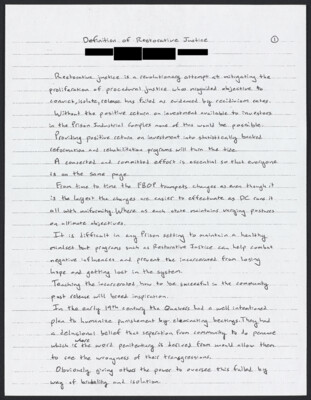 Definition of Restorative Justice
1
Restorative justice is a revolutionary attempt at mitigating the
proliferation of procedural justice when misguided objective to
convict, isolate, release has failed as evidenced by recidivism rates.
Without the positive return on investment available to investors
in the Prison Industrial Complex none of this would be possible.
Providing positive return on investment into statistically backed
reformation and rehabilitation programs will turn the tide.
A concerted and committed effort is essential so that everyone
is on the same page.
From time to time the FBOP trumpets changes as even though it
is the largest the changes are easier to effectuate as DC runs it
all with uniformity. Where as each state maintains varying postures
on ultimate objectives.
It is difficult in any prison setting to maintain a healthy
mindset but programs such as Restorative Justice can help combat
negative influences and prevent the incarcerated from losing
hope and getting lost in the system.
Teaching the incarcerated how to be successful in the community
post release will breed inspiration.
In the early 19th century the Quakers had a well intentioned
plan to humanize punishment by eliminating beatings. They had
a delusional belief that seperation from community to do penance
where
which is the word penitentiary is derived from would allow them
to see the wrongness of their transgressions.
Obviously giving others the power to oversee this failed by
way of brutality and isolation.